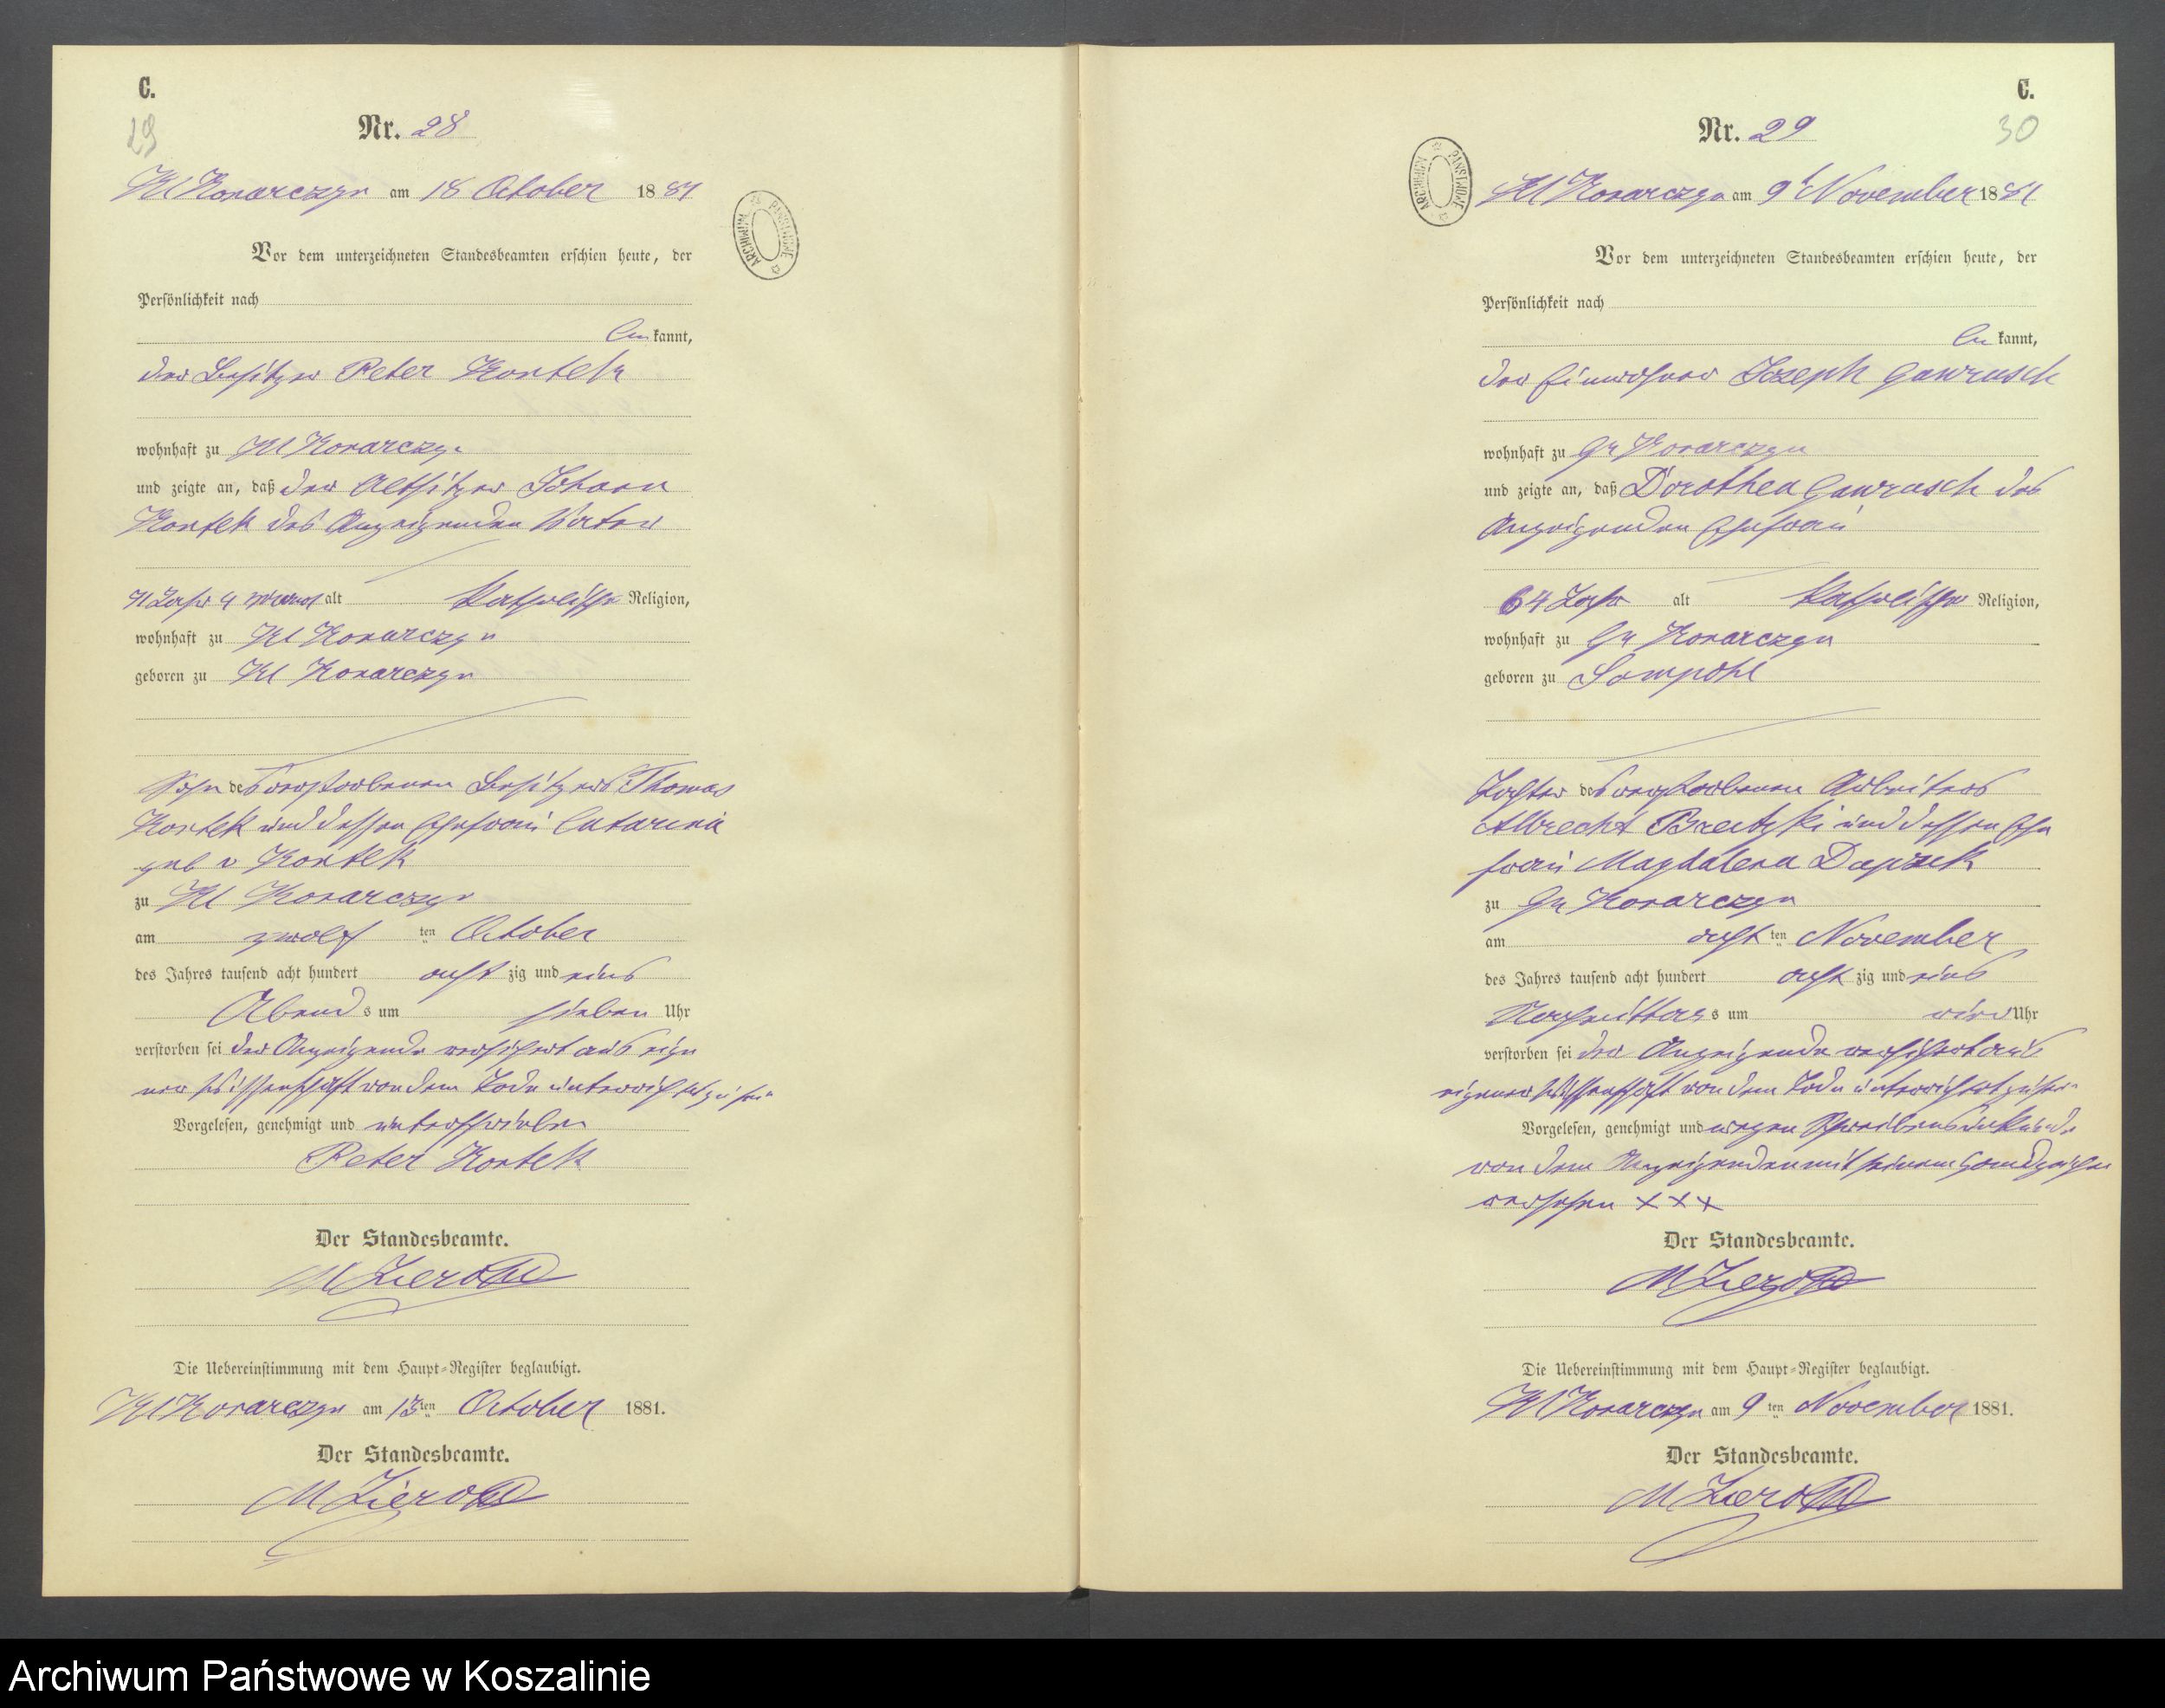 C.
29
Nr. 28
Kl Konarczyn am 18 October 1881
ARCHIWUM PAŃSTWOWE
Vor dem unterzeichneten Standesbeamten erschien heute, der
Persönlichkeit nach
be kannt,
der Besitzer Peter Kontek
wohnhaft zu Kl Konarczyn
und zeigte an, daß der Altsitzer Johann
Kontek des Anzeigenden Vater
71 Jahr 4 Monat alt Katholische Religion,
wohnhaft zu Kl Konarczyn
geboren zu Kl Konarczyn
Sohn des verstorbenen Besitzers Thomas
Kontek und dessen Ehefrau Catarina
geb v Kontek
zu Kl Konarczyn
am zwölf ten October
des Jahres tausend acht hundert acht zig und eins
Abend s um sieben Uhr
verstorben sei der Anzeigende versichert aus eige
ner Wissenschaft von dem Tode unterrichtet zu sein
Vorgelesen, genehmigt und unterschrieben
Peter Kontek
Der Standesbeamte.
Die Uebereinstimmung mit dem Haupt-Register beglaubigt.
Kl Konarczyn am ten October 1881.
Der Standesbeamte.
C.
30
Nr. 29
ARCHIWUM PAŃSTWOWE
Kl Konarczyn am 9t November 1881
Vor dem unterzeichneten Standesbeamten erschien heute, der
Persönlichkeit nach
be kannt,
der Einwohner Joseph Gawrusch
wohnhaft zu Gr Konarczyn
und zeigte an, daß Dorothea Gawrusch des
Anzeigenden Ehefrau
64 Jahr alt Katholische Religion,
wohnhaft zu Gr Konarczyn
geboren zu Sampohl
Tochter des verstorbenen Arbeiters
Albrecht und dessen Ehe
frau Magdalena
zu Gr Konarczyn
am acht ten November
des Jahres tausend acht hundert acht zig und eins
Nachmittag s um vier Uhr
verstorben sei der Anzeigende versichert aus
eigener Wissenschaft von dem Tode unterrichtet zu sein
Vorgelesen, genehmigt und wegen Schreibensunkunde
von dem Anzeigenden mit seinem Handzeichen
versehen XXX
Der Standesbeamte.
Die Uebereinstimmung mit dem Haupt-Register beglaubigt.
Kl Konarczyn am 9 ten November 1881.
Der Standesbeamte.
Archiwum Państwowe w Koszalinie